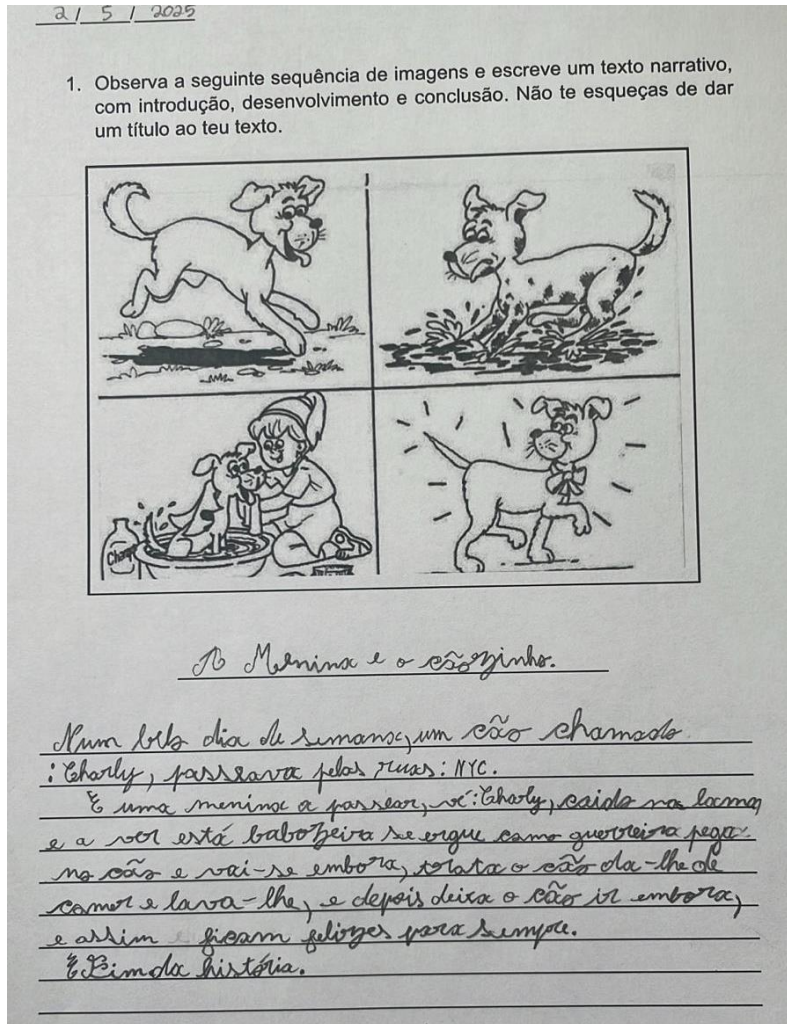 2 / 5 / 2025
1. Observa a seguinte sequência de imagens e escreve um texto narrativo,
com introdução, desenvolvimento e conclusão. Não te esqueças de dar
um título ao teu texto.
A Menina e o cãozinho.
Num belo dia de semana, um cão chamado
: Charly, passeava pelas ruas: NYC.
E uma menina a passear, vê: Charly, caido na lama,
e a ver está babozeira se ergue como guerreira pega
no cão e vai-se embora, trata o cão da-lhe de
comer e lava-lhe, e depois deixa o cão ir embora,
e assim ficam felizes para sempre.
E Fim da história.